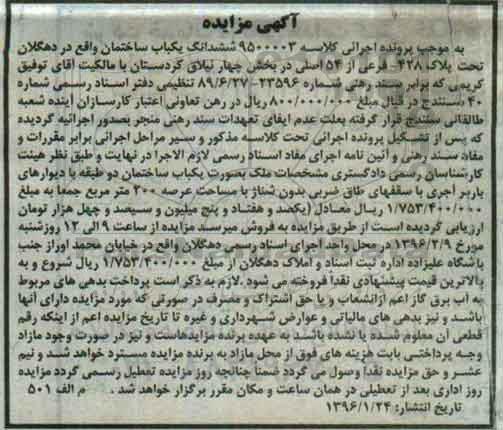 آگهی مزایده
به موجب پرونده اجرائی کلاسه ۹۵۰۰۰۰۳ ششدانگ یکباب ساختمان واقع در دهگلان
تحت پلاک ۴۲۸- فرعی از ۵۴ اصلی در بخش چهار نیلاق کردستان با مالکیت آقای توفیق
کریمی که برابر سند رهنی شماره ۲۳۵۹۶-۸۹/۶/۲۷ تنظیمی دفتر اسناد رسمی شماره
۴۰ سنندج در قبال مبلغ ۸۰۰/۰۰۰/۰۰۰ ریال در رهن تعاونی اعتبار کارسازان آینده شعبه
طالقانی سنندج قرار گرفته بعلت عدم ایفای تعهدات سند رهنی منجر بصدور اجرائیه گردیده
که پس از تشکیل پرونده اجرائی تحت کلاسه مذکور و سیر مراحل اجرائی برابر مقررات و
مفاد سند رهنی و آئین نامه اجرای مفاد اسناد رسمی لازم الاجرا در نهایت و طبق نظر هیئت
کارشناسان رسمی دادگستری مشخصات ملک بصورت یکباب ساختمان دو طبقه با دیوارهای
باربر آجری با سقفهای طاق ضربی بدون شناژ با مساحت عرصه ۲۰۰ متر مربع جمعا به مبلغ
۱/۷۵۳/۴۰۰/۰۰۰ ریال معادل (یکصد و هفتاد و پنج میلیون و سیصد و چهل هزار تومان
ارزیابی گردیده است از طریق مزایده به فروش میرسد مزایده از ساعت ۹ الی ۱۲ روز شنبه
مورخ ۱۳۹۶/۲/۹ در محل واحد اجرای اسناد رسمی دهگلان واقع در خیابان محمد اوراز جنب
باشگاه علیزاده اداره ثبت اسناد و املاک دهگلان از مبلغ ۱/۷۵۳/۴۰۰/۰۰۰ ریال شروع و به
بالاترین قیمت پیشنهادی نقدا فروخته می شود .لازم به ذکر است پرداخت بدهی های مربوط
به آب برق گاز اعم ازانشعاب و یا حق اشتراک و مصرف در صورتی که مورد مزایده دارای آنها
باشد و نیز بدهی های مالیاتی و عوارض شهرداری و غیره تا تاریخ مزایده اعم از اینکه رقم
قطعی آن معلوم شده یا نشده باشد به عهده برنده مزایدهاست و نیز در صورت وجود مازاد
وجه پرداختی بابت هزینه های فوق از محل مازاد به برنده مزایده مسترد خواهد شد و نیم
عشر و حق مزایده نقدا وصول می گردد ضمنا چنانچه روز مزایده تعطیل رسمی گردد مزایده
روز اداری بعد از تعطیلی در همان ساعت و مکان مقرر برگزار خواهد شد . م الف ۵۰۱
تاریخ انتشار: ۱۳۹۶/۱/۲۴